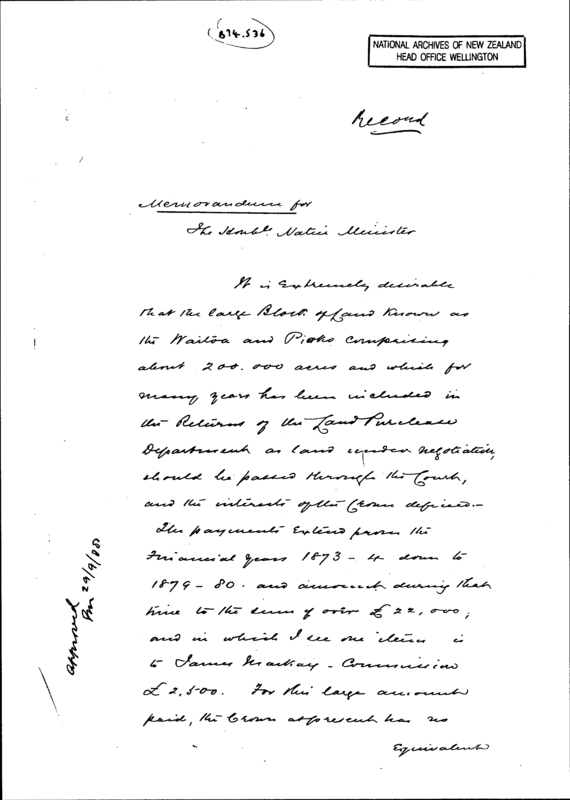 B74.536
NATIONAL ARCHIVES OF NEW ZEALAND
HEAD OFFICE WELLINGTON
Record
Memorandum for
The Honble. Native Minister
It is Extremely desirable
that the large Block of Land Known as
the Waitoa and Piako Comprising
about 200.000 acres and which for
many years has been included in
the Returns of the Land Purchase
Department as land under negotiation,
should be passed through the Court,
and the interests of the Crown defined.-
The payments Extend from the
Financial years 1873-4 down to
1879-80. and amount during that
time to the sum of over £22,000;
and in which I see one item is
to James Mackay - Commission
£2,500. For this large amount
paid, the Crown at present has no
Equivalent
approved
29/9/85